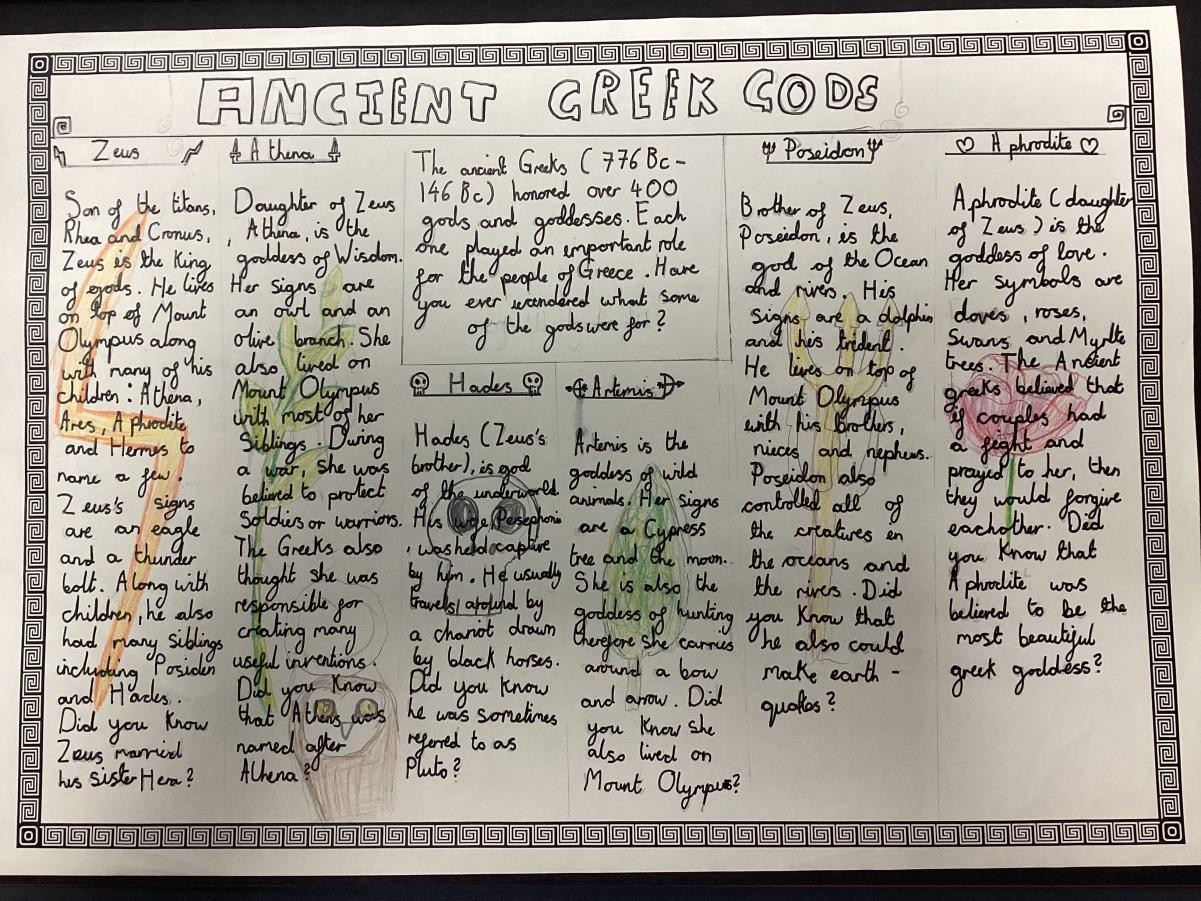 ANCIENT GREEK GODS
Zeus
Son of the titans,
Rhea and Cronus,
Zeus is the King
of gods. He lives
on top of Mount
Olympus along
with many of his
children: Athena,
Ares, Aphrodite
and Hermes to
name a few.
Zeus's signs
are an eagle
and a thunder
bolt. Along with
children, he also
had many siblings
including Posiden
and Hades.
Did you know
Zeus married
his sister Hera?
Athena
Daughter of Zeus
, Athena, is the
goddess of Wisdom.
Her signs are
an owl and an
olive branch. She
also lived on
Mount Olympus
with most of her
Siblings. During
a war, she was
believed to protect
Soldiers or warriors.
The Greeks also
thought she was
responsible for
creating many
useful inventions.
Did you know
that Athens was
named after
Athena?
The ancient Greeks (776 Bc -
146 Bc) honored over 400
gods and goddesses. Each
one played an important role
for the people of Greece. Have
you ever wandered what some
of the gods were for?
Hades
Hades (Zeus's
brother), is god
of the underworld.
His wife, Persephonie
, was held captive
by him. He usually
travels around by
a chariot drawn
by black horses.
Did you know
he was sometimes
referred to as
Pluto?
Artemis
Artemis is the
goddess of wild
animals. Her signs
are a Cypress
tree and the moon.
She is also the
goddess of hunting
therefore she carries
around a bow
and arrow. Did
you know she
also lived on
Mount Olympus?
Poseidon
Brother of Zeus,
Poseidon, is the
god of the Ocean
and rivers. His
signs are a dolphin
and his trident.
He lives on top of
Mount Olympus
with his brothers,
nieces and nephews.
Poseidon also
controlled all of
the creatures in
the oceans and
the rivers. Did
you know that
he also could
make earth -
quakes?
Aphrodite
Aphrodite (daughter
of Zeus) is the
goddess of love.
Her symbols are
doves, roses,
Swans and Myrlte
trees. The Ancient
greeks believed that
if couples had
a fight and
prayed to her, then
they would forgive
eachother. Did
you know that
Aphrodite was
believed to be the
most beautiful
greek goddess?